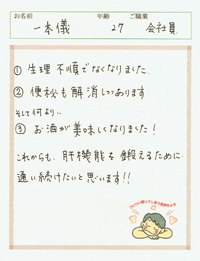 お名前 年齢 ご職業
一本儀 27 会社員
① 生理不順でなくなりました
② 便秘も解消しつつあります
そして何より…
③ お酒が美味しくなりました！
これからも、肝機能を鍛えるために
通い続けたいと思います!!